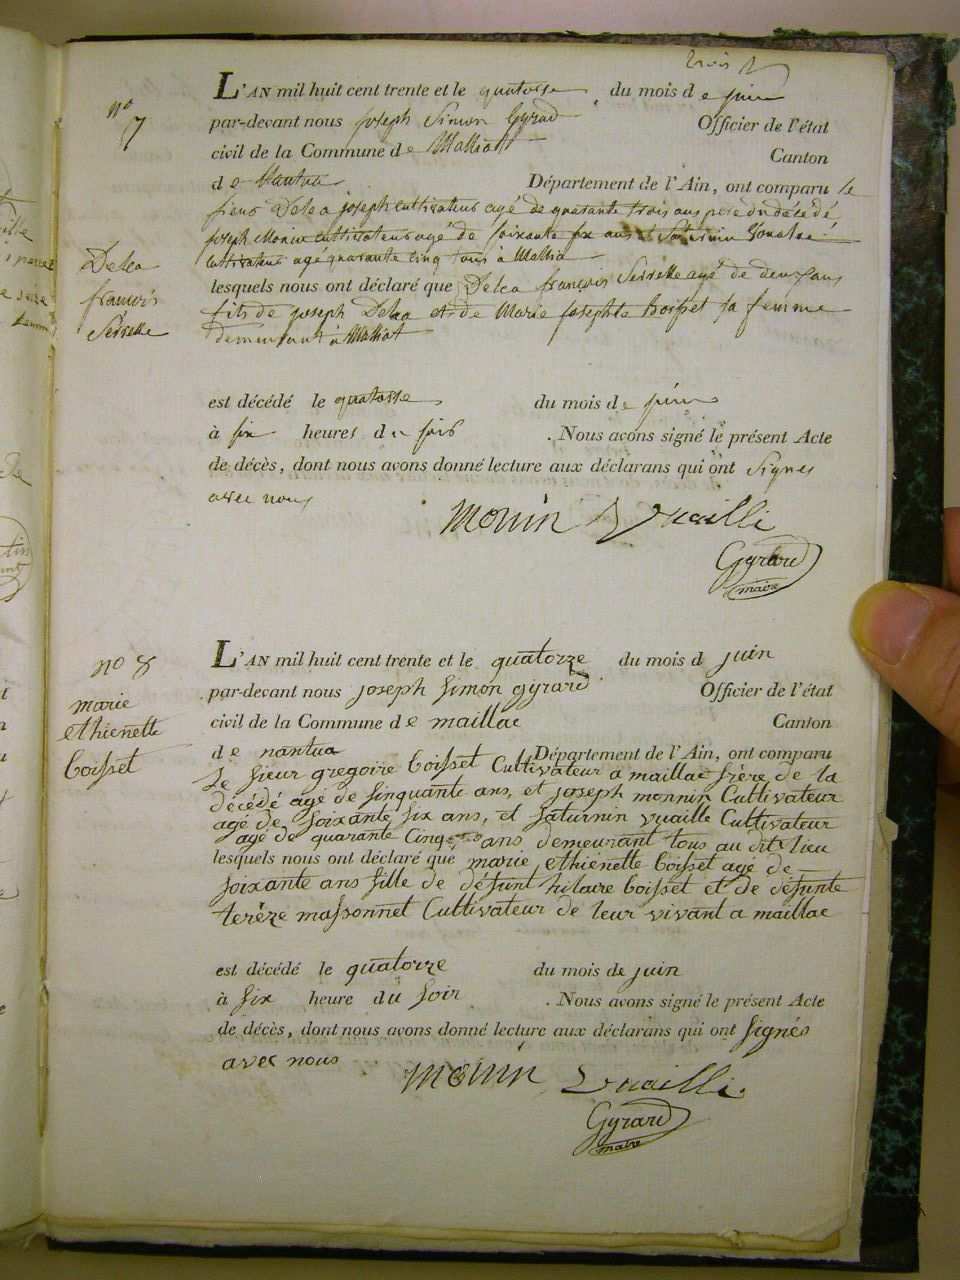 trois
n°
7
L'AN mil huit cent trente et le quatosse du mois de juin
par-devant nous joseph Simon Gyrad Officier de l'état
civil de la Commune de Malliat Canton
de Nantua Département de l'Ain, ont comparu le
sieur Delea joseph cultivateur agé de quarante trois ans pere du décedé
joseph Monin cultivateur agé de soixante six ans et Saturnin
cultivateur age quarante cinq tous à Mallia
Delea
francois
Serselle
lesquels nous ont déclaré que Delea françois Serselle agé de deux ans
fils de joseph Delea et de Marie josephte Boisset sa femme
demeurant à Malliat
est décédé le quatosse du mois de juin
à six heures du soir . Nous avons signé le présent Acte
de décès, dont nous avons donné lecture aux déclarans qui ont Signes
avec nous
monin Vuailli
Gyrard
maire
n° 8
marie
ethienette
boisset
L'AN mil huit cent trente et le quatorze du mois d juin
par-devant nous joseph simon gyrard Officier de l'état
civil de la Commune de maillac Canton
de nantua Département de l'Ain, ont comparu
le sieur gregoire boisset Cultivateur a maillac frère de la
décédé agé de sinquante ans, et joseph monnin Cultivateur
agé de soixante six ans, et saturnin vuaille Cultivateur
agé de quarante Cinq ans demeurant tous au dit lieu
lesquels nous ont déclaré que marie ethienette boisset agé de
soixante ans fille de défunt hilaire boisset et de défunte
terèze massonnet Cultivateur de leur vivant a maillac
est décédé le quatorze du mois de juin
à six heure du soir . Nous avons signé le présent Acte
de décès, dont nous avons donné lecture aux déclarans qui ont signés
avec nous
monin Vuailli
Gyrard
maire